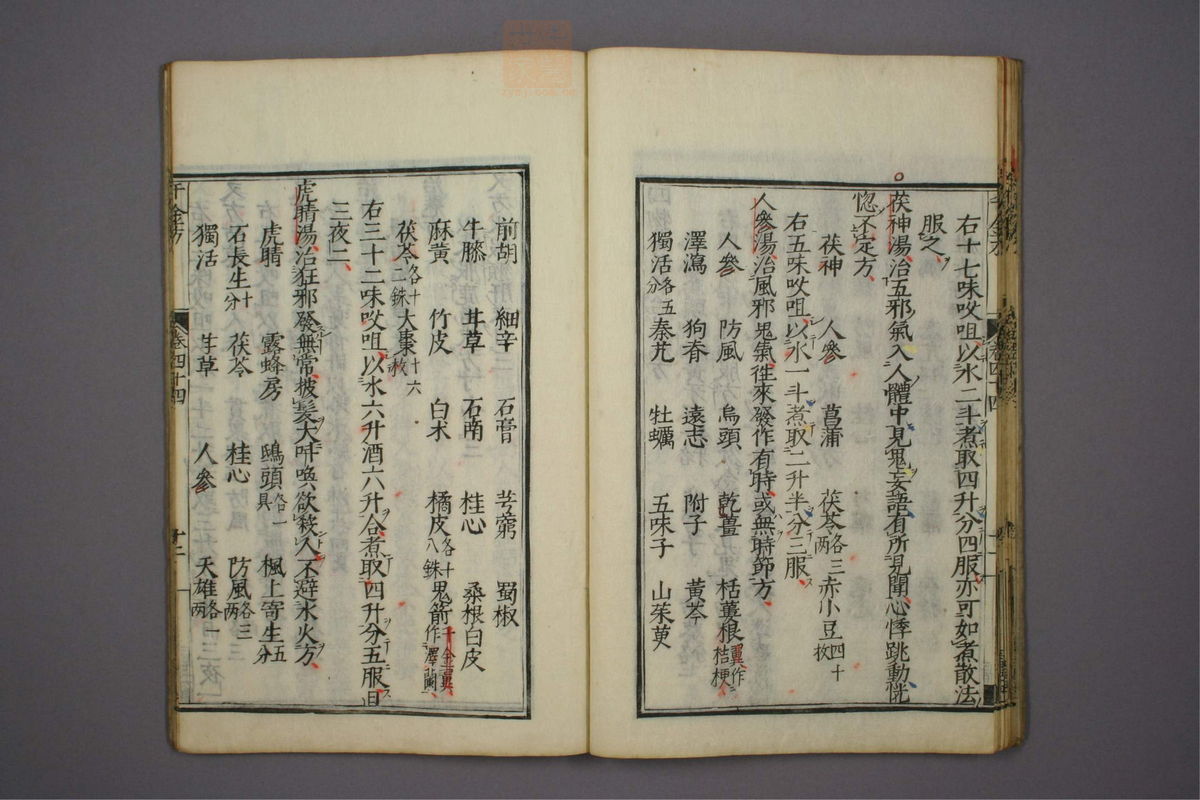 右十七味㕮咀以水二斗煮取四升分四服亦可如煮散法
服之
茯神湯治五邪氣入人體中見鬼妄語有所見聞心悸跳動恍
惚不定方
茯神 人參 菖蒲 茯苓各三兩 赤小豆四十枚
右五味㕮咀以水一斗煮取二升半分三服
人參湯治風邪鬼氣徃來發作有時或無時節方
人參 防風 烏頭 乾薑 栝蔞根翼作桔梗
澤瀉 狗脊 遠志 附子 黃芩
獨活各五分 秦艽 牡蠣 五味子 山茱萸
前胡 細辛 石膏 芎藭 蜀椒
牛膝 甘草 石南 桂心 桑根白皮
麻黃 竹皮 白术 橘皮各十八銖 鬼箭千金翼作澤蘭
茯苓各十二銖 大棗十六枚
右三十二味㕮咀以水六升酒六升合煮取四升分五服日
三夜二
虎睛湯治狂邪發無常披髮大呌喚欲殺人不避水火方
虎睛 露蜂房 鴟頭各一具 楓上寄生五分
石長生十分 茯苓 桂心 防風各三兩
獨活 甘草 人參 天雄各一兩
千金方 卷四十四 十二